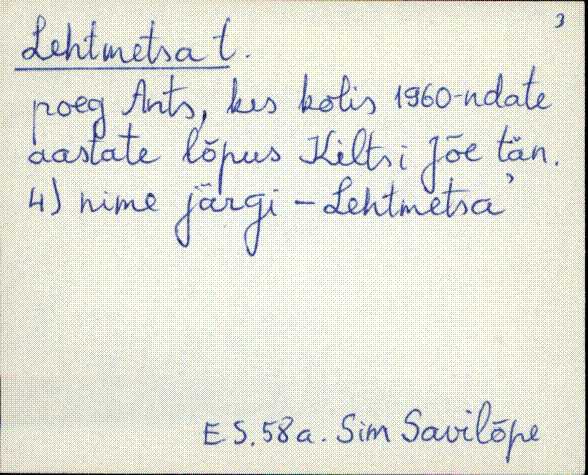 3
Lehtmetsa t.
poeg Ants, kes kolis 1960-ndate
aastate lõpus Kiltsi Jõe tän.
4) nime järgi – Lehtmetsa'
E S. 58 a. Sim Savilõpe